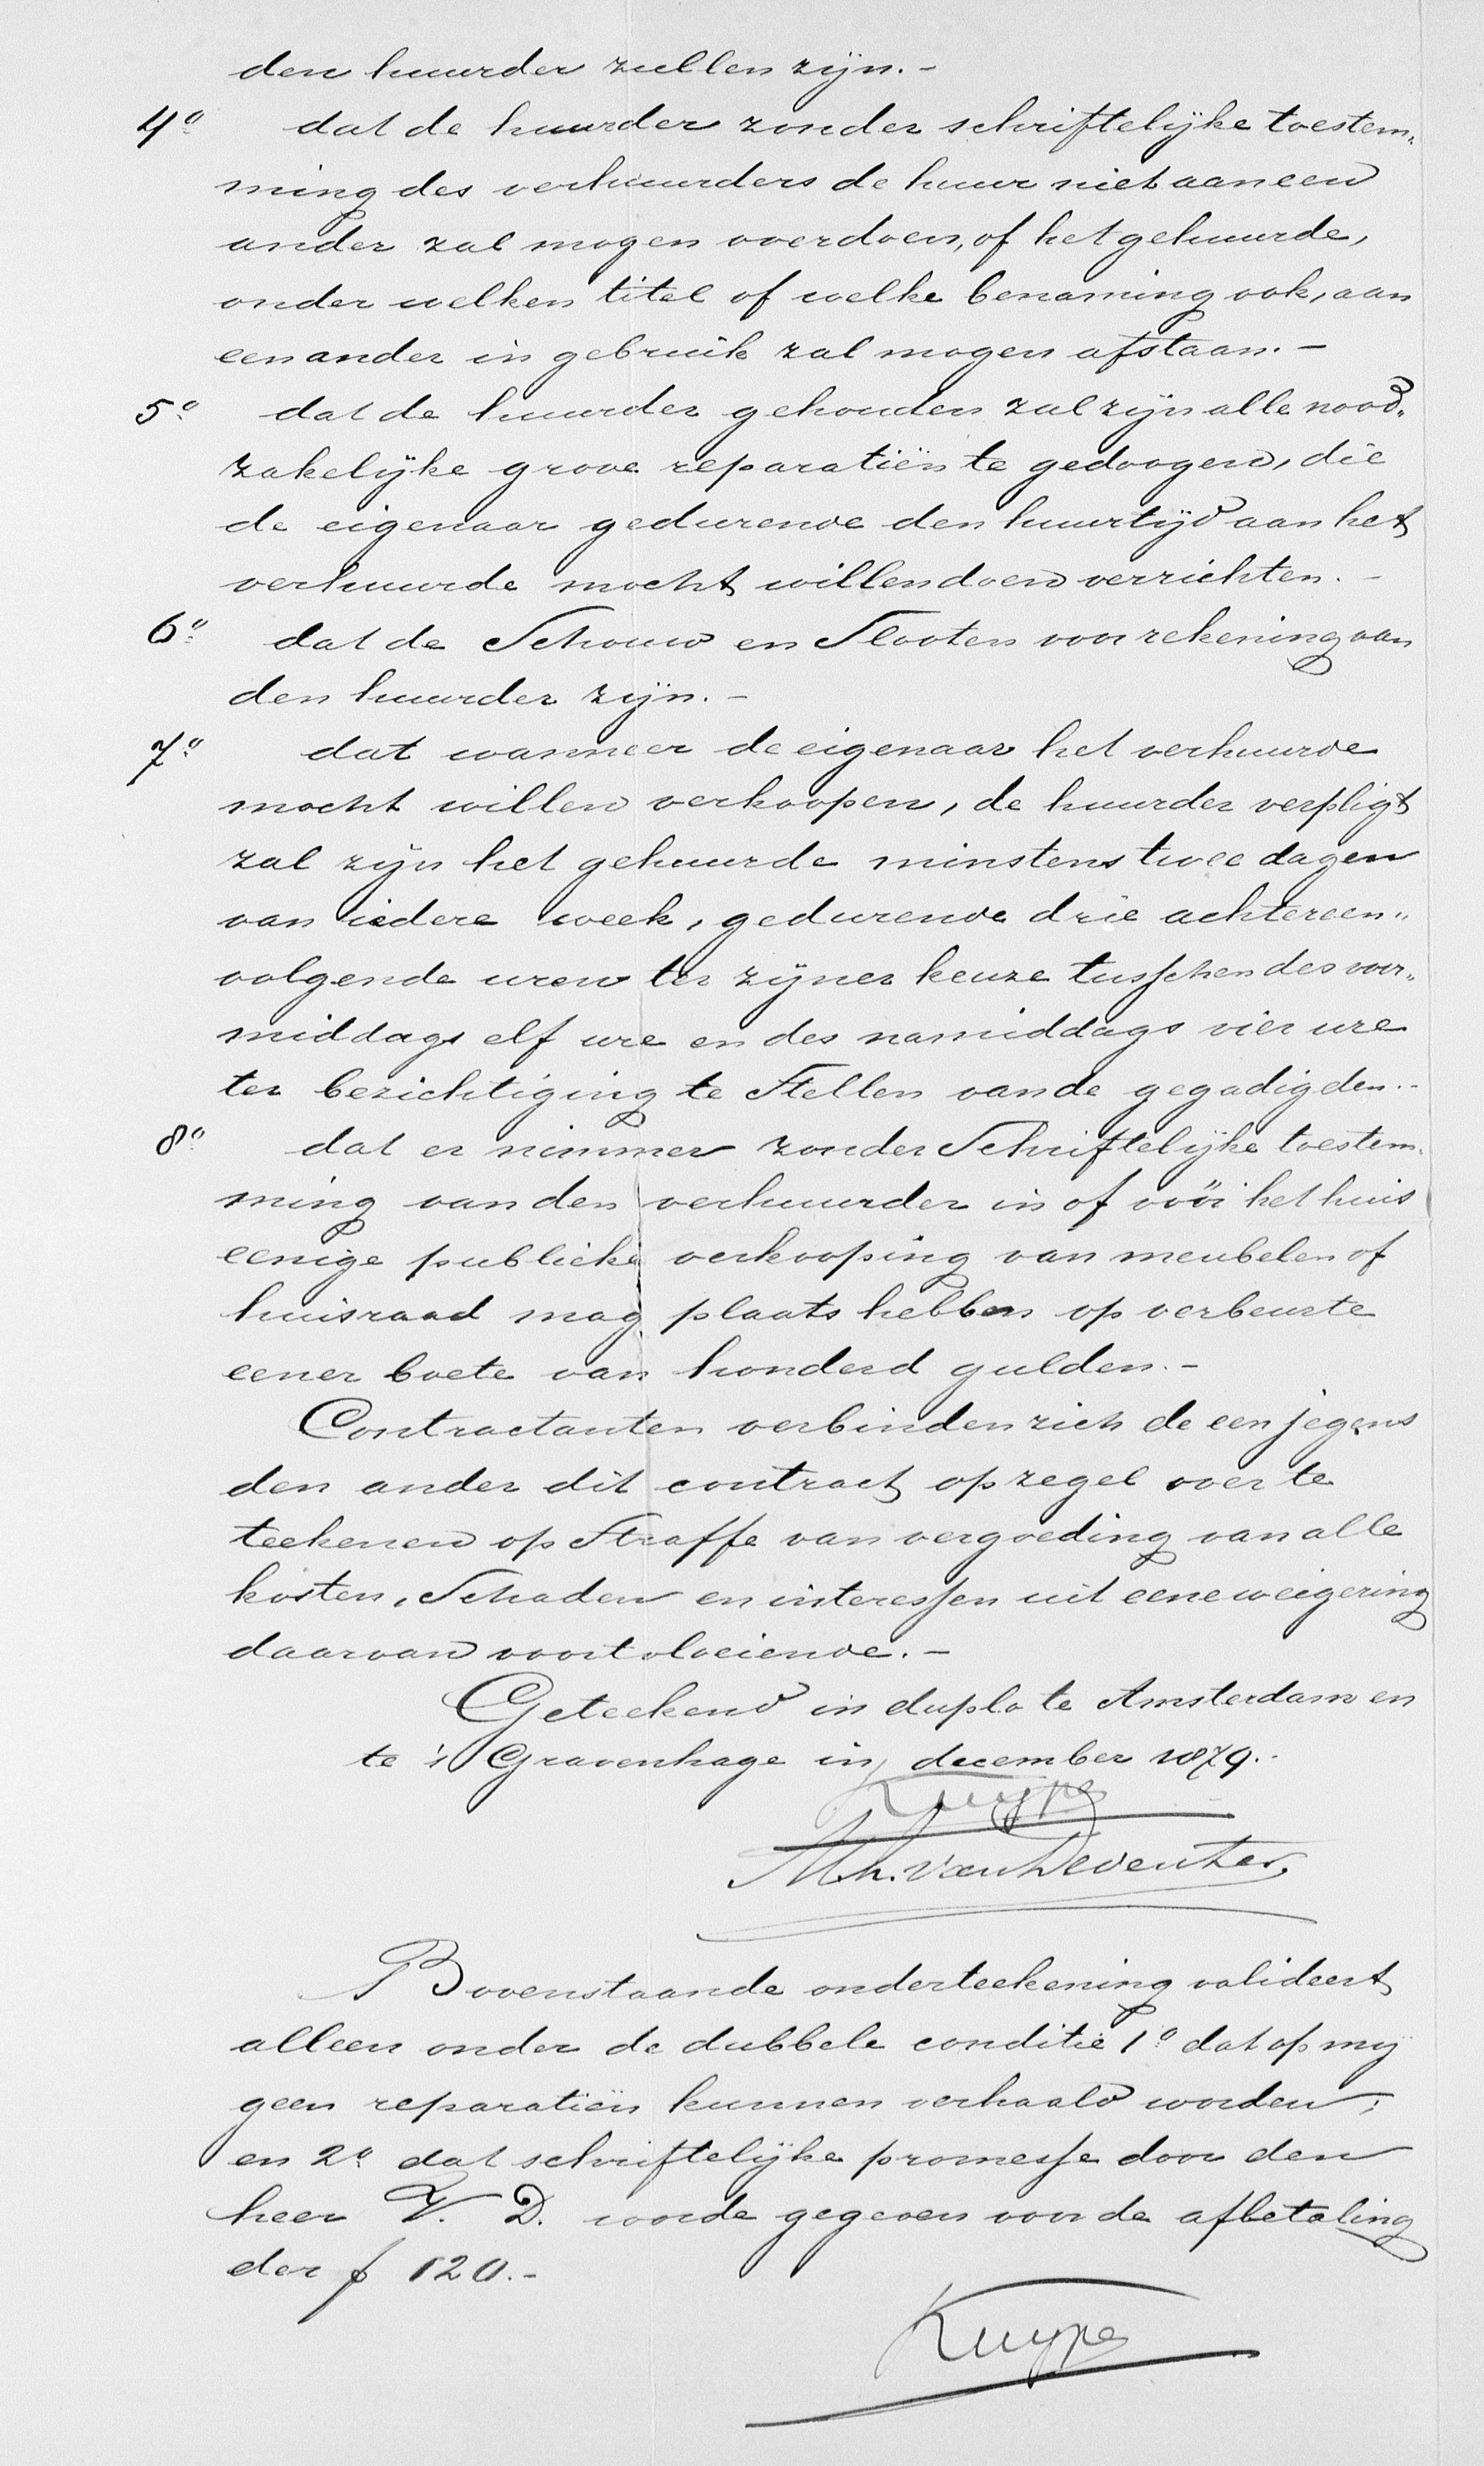 den huurder zullen zijn.-
4o dat de huurder zonder schriftelijke toestem-
ming des verhuurders de huur niet aan een
ander zal mogen overdoen, of het gehuurde,
onder welken titel of welke benaming ook, aan
een ander in gebruik zal mogen afstaan.-
5o dat de huurder gehouden zal zijn alle nood-
zakelijke grove reparatiën te gedoogen, die
de eigenaar gedurende den huurtijd aan het
verhuurde mocht willen doen verrichten.-
6o dat de Schouw en Slooten voor rekening van
den huurder zijn.-
7o dat wanneer de eigenaar het verhuurde
mocht willen verkoopen, de huurder verpligt
zal zijn het gehuurde minstens twee dagen
van iedere week, gedurende drie achtereen-
volgende uren ter zijner keuze tusschen des voor-
middags elf ure en des namiddags vier ure
ter bezichtiging te Stellen van de gegadigden.-
8o dat er nimmer zonder Schriftelijke toestem-
ming van den verhuurder in of vóór het huis
eenige publieke verkooping van meubelen of
huisraad mag plaats hebben op verbeurte
eener boete van honderd gulden.-
Contractanten verbinden zich de een jegens
den ander dit contract op zegel over te
teekenen op Straffe van vergoeding van alle
kosten, Schaden en interessen uit eene weigering
daarvan voortvloeiende.-
Geteekend in duplo te Amsterdam en
te 's Gravenhage in december 1879.-
Kuyper
M.h. van Deventer,
Bovenstaande onderteekening valideert
alleen onder de dubbele conditie 1o dat op mij
geen reparatiën kunnen verhaald worden;
en 2o dat schriftelijke promesse door den
heer V. D. worde gegeven voor de afbetaling
der f 120.-
Kuyper